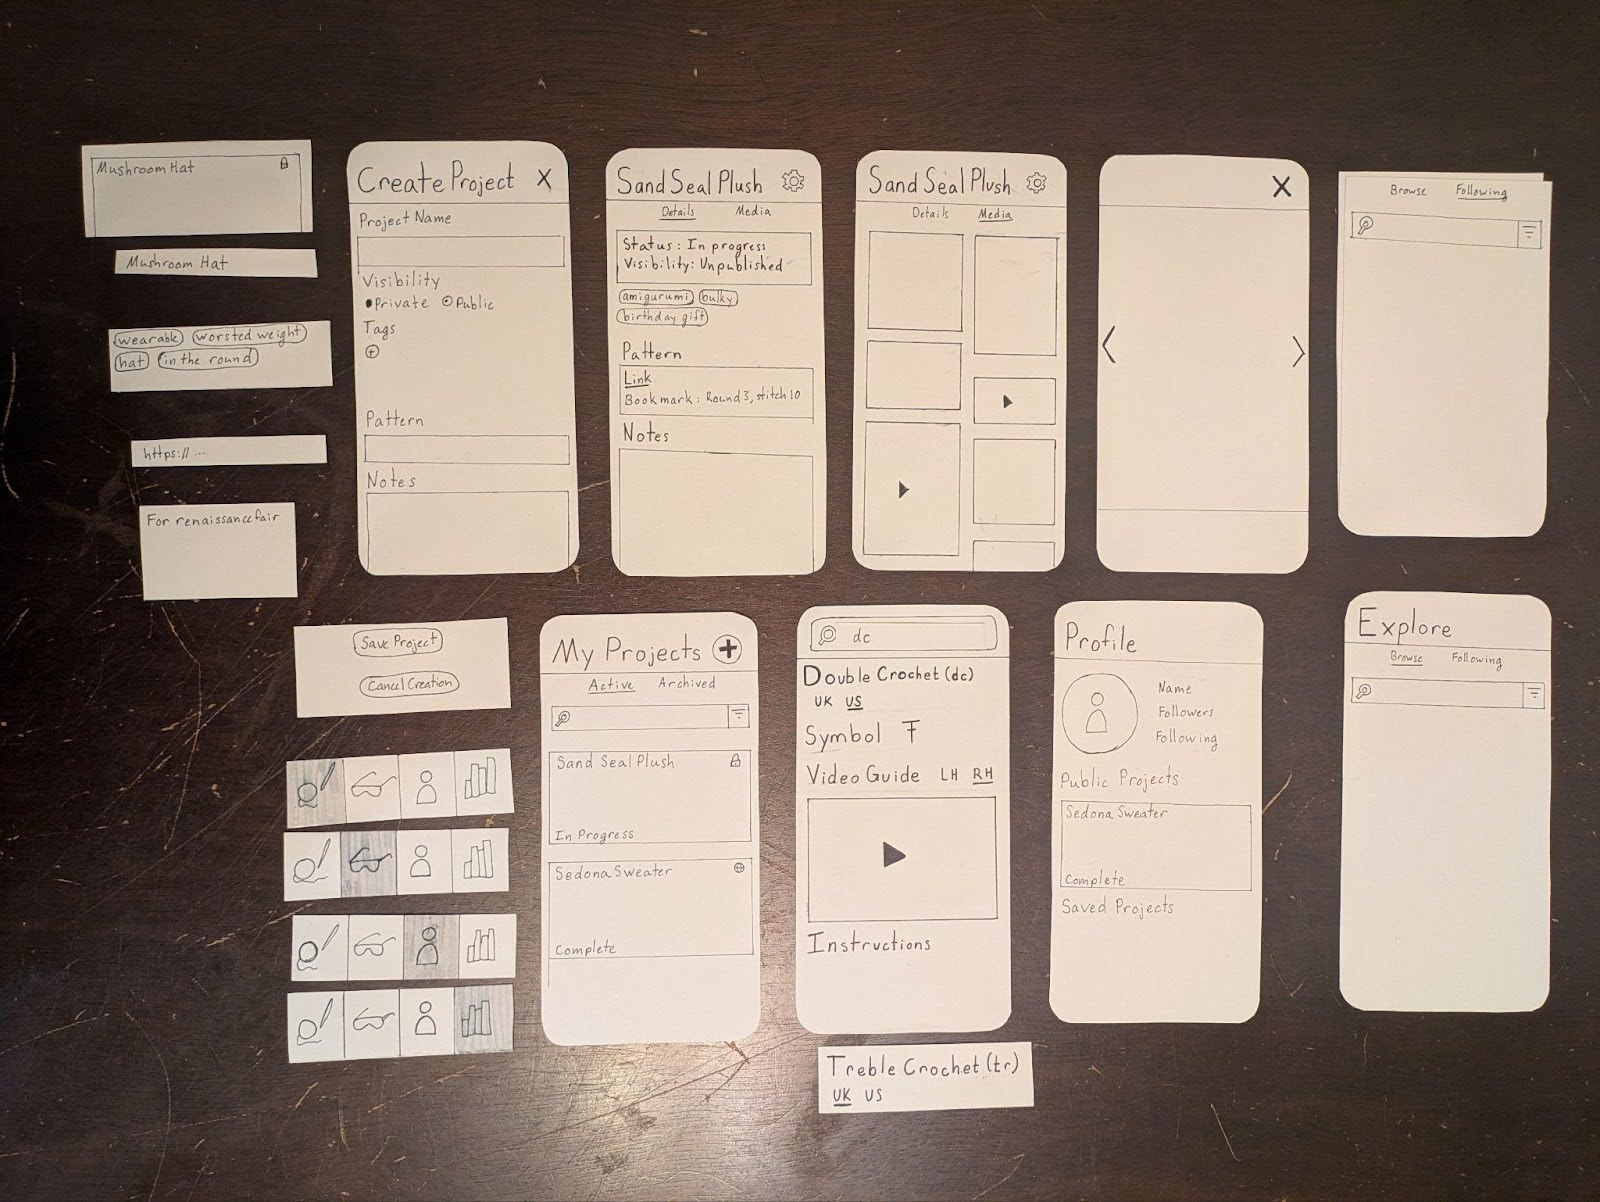 Mushroom Hat
Mushroom Hat
wearable worsted weight
hat in the round
https:// ...
For renaissance fair
Create Project X
Project Name
Visibility
Private Public
Tags
Pattern
Notes
Sand Seal Plush
Details Media
Status: In progress
Visibility: Unpublished
amigurumi bulky
birthday gift
Pattern
Link
Bookmark: Round 3, stitch 10
Notes
Sand Seal Plush
Details Media
X
Browse Following
Save Project
Cancel Creation
My Projects
Active Archived
Sand Seal Plush
In Progress
Sedona Sweater
Complete
dc
Double Crochet (dc)
UK US
Symbol
Video Guide LH RH
Instructions
Treble Crochet (tr)
UK US
Profile
Name
Followers
Following
Public Projects
Sedona Sweater
Complete
Saved Projects
Explore
Browse Following